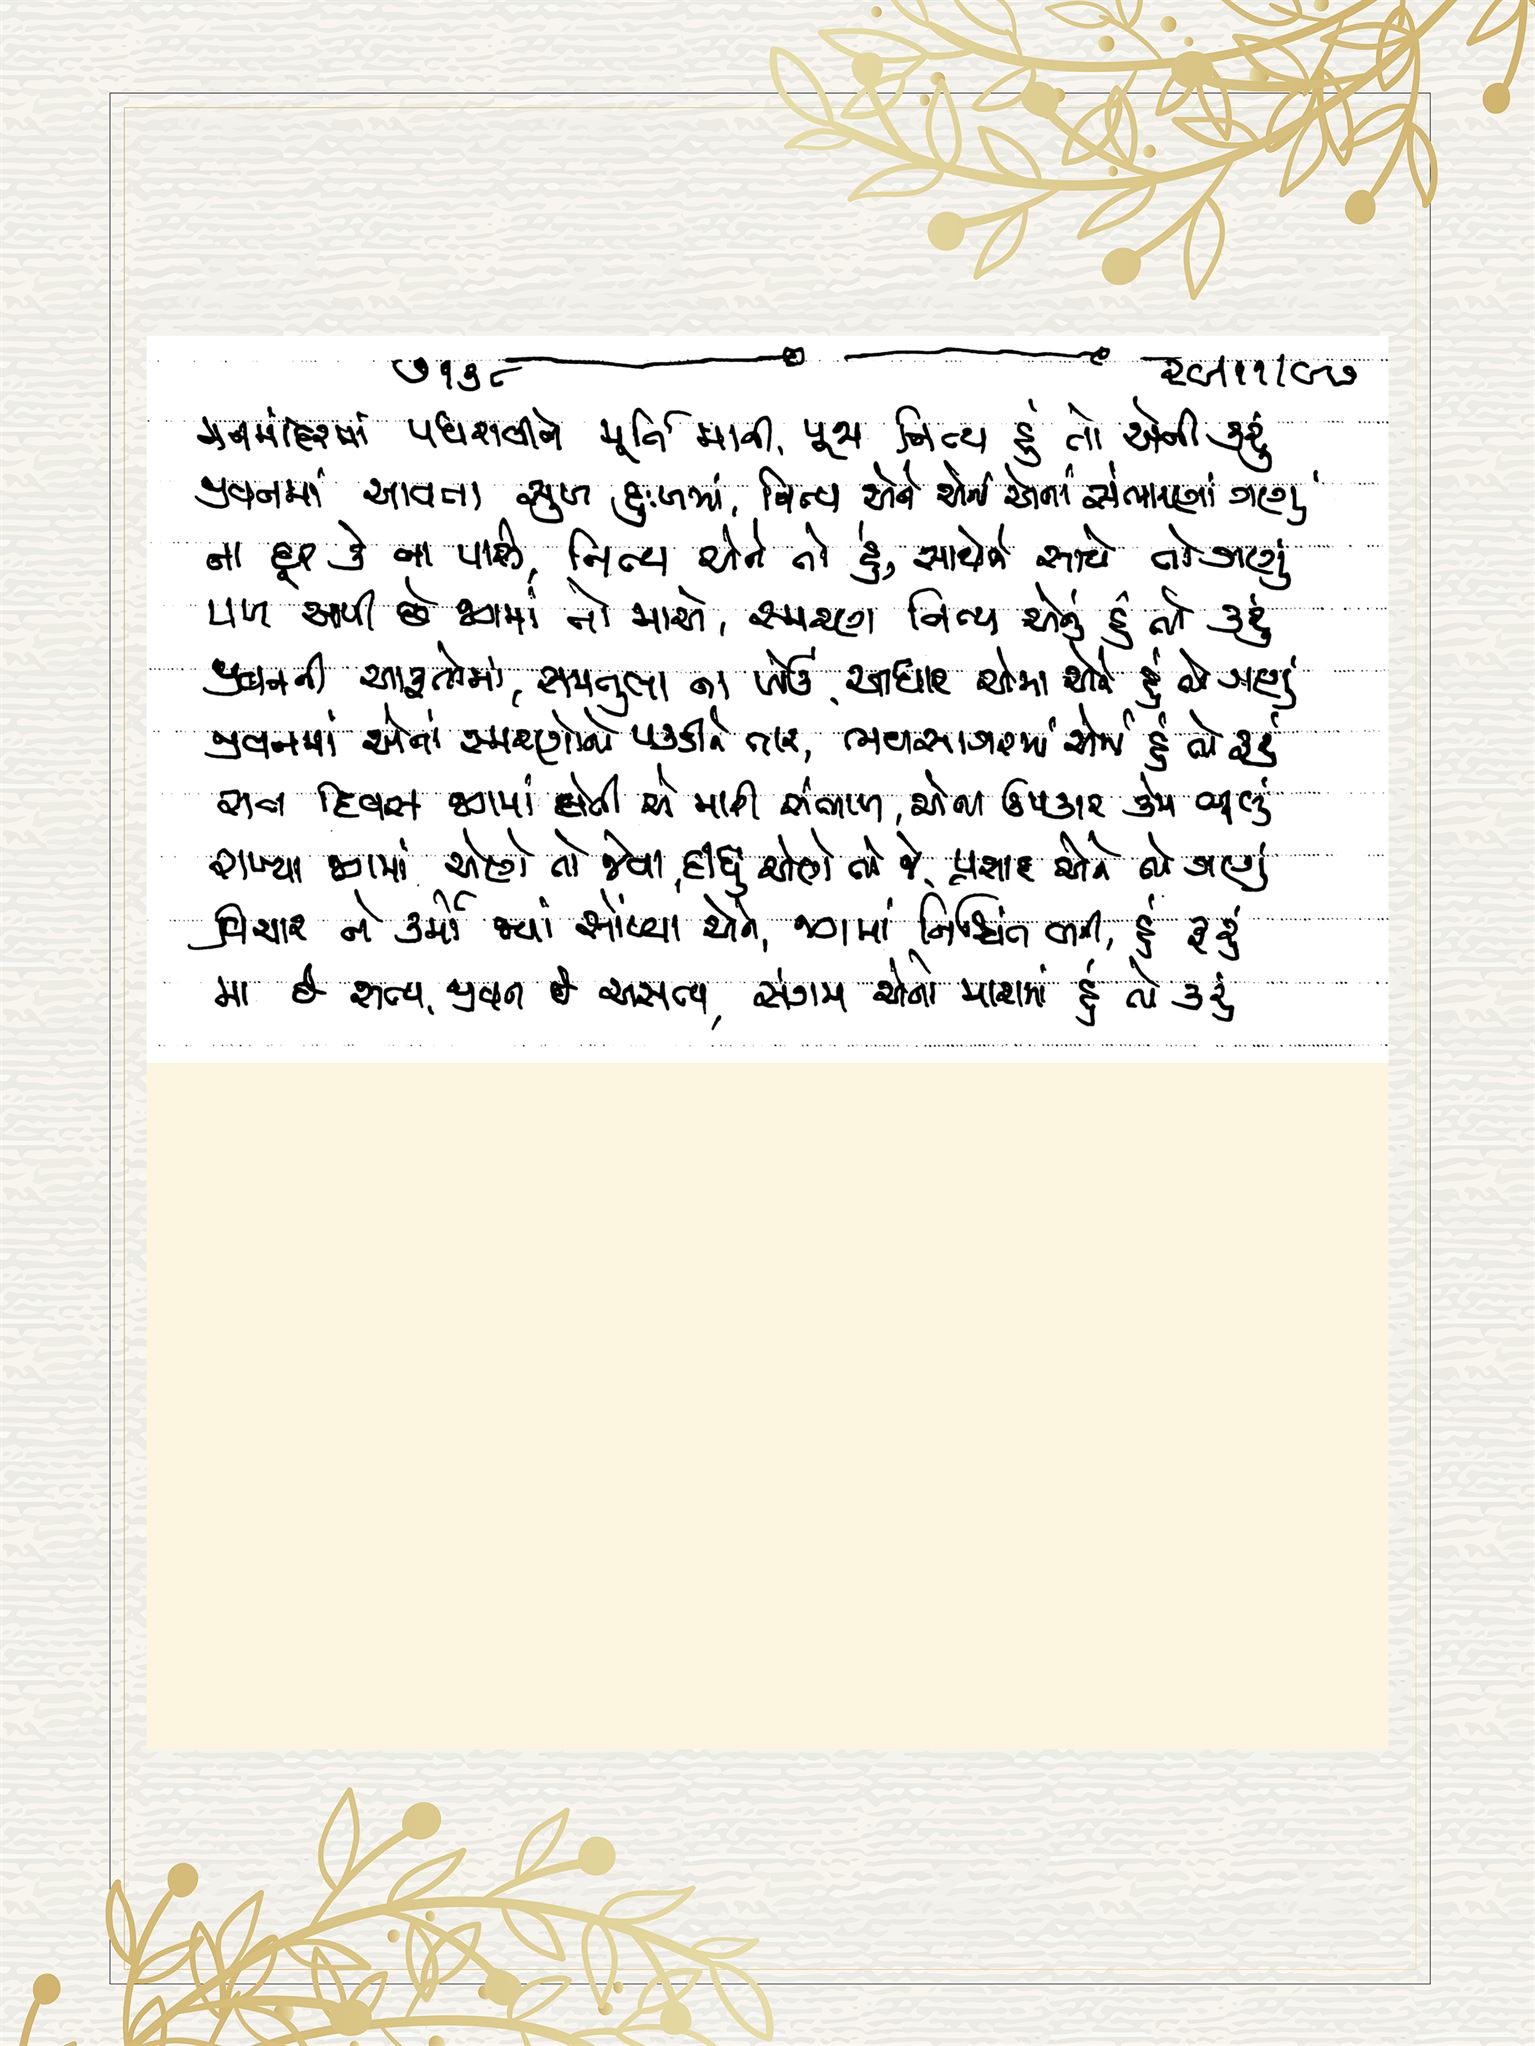 ૭૧૩૮ ૨૯/૧૧/૯૭
મનમંદિરમાં પધરાવીને મૂર્તિ માની, પૂજા નિત્ય હું તો એની કરું
જીવનમાં આવતા સુખ દુઃખમાં, નિત્ય એને એનાં સંભારણાં ગણું
ના દૂર કે ના પાસે, નિત્ય એને તો હું, સાથેને સાથે તો ગણું
પળ આપી છે જગમાં તો માએ, સ્મરણ નિત્ય એનું હું તો કરું
જીવનની આફતોમાં, સમતુલા ના ખોઉં, આધાર એમાં એને હું તો ગણું
જીવનમાં એનાં સ્મરણોનો પકડીને તાર, ભવસાગરમાં એમાં હું તો ફરું
રાત દિવસ જગમાં લેતી એ મારી સંભાળ, એના ઉપકાર કેમ ભૂલું
રાખ્યા જગમાં એણે તો જેવા, દીધું એણે તો જે, પ્રસાદ એને તો ગણું
વિચાર ને કર્મો જ્યાં સોંપ્યા એને, જગમાં નિશ્ચિંત બની, હું ફરું
મા છે સત્ય, જીવન છે અસત્ય, સંગમ એનો મારામાં હું તો કરું